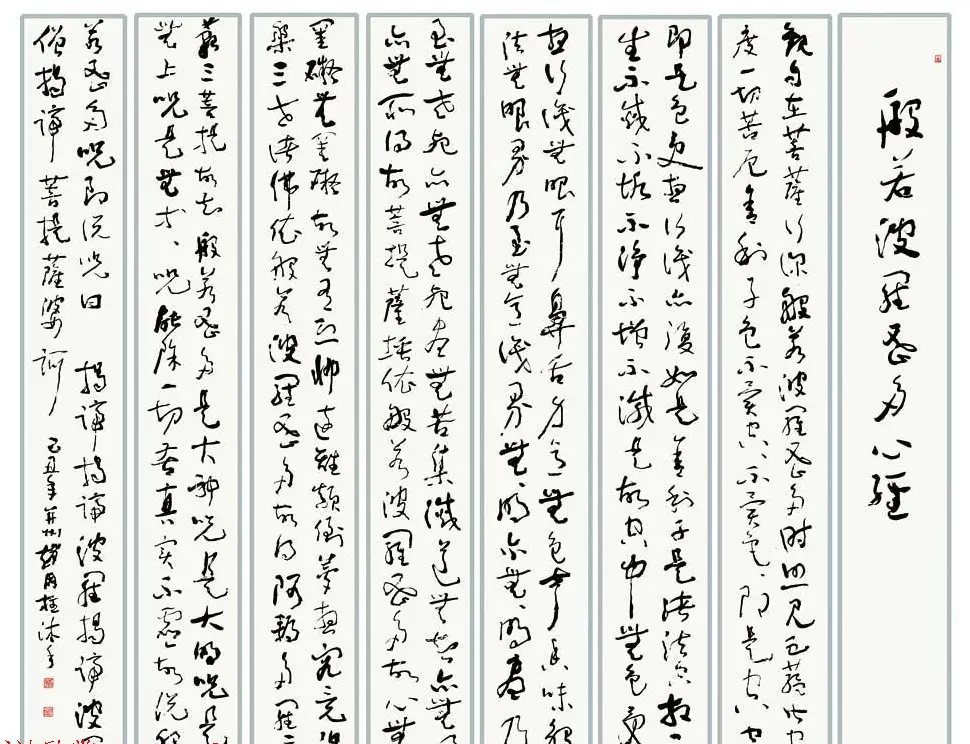 般若波羅蜜多心經
觀自在菩薩行深般若波羅蜜多時照見五蘊皆空
度一切苦厄舍利子色不異空、不異色、即是空、
即是色受想行識亦復如是舍利子是諸法空相不
生不滅不垢不淨不增不減是故空中無色無受
想行識無眼耳鼻舌身意無色聲香味觸
法無眼界乃至無意識界無無明亦無無明盡乃
至無老死亦無老死盡無苦集滅道無智亦無
以無所得故菩提薩埵依般若波羅蜜多故心無
罣礙無罣礙故無有恐怖遠離顛倒夢想究竟涅
槃三世諸佛依般若波羅蜜多故得阿耨多羅三
藐三菩提故知般若蜜多是大神咒是大明咒是
無上咒是無等、咒能除一切苦真實不虛故說般
若蜜多咒即說咒曰 揭諦揭諦波羅揭諦波羅
僧揭諦 菩提薩婆訶
己丑年并州趙國柱沐手